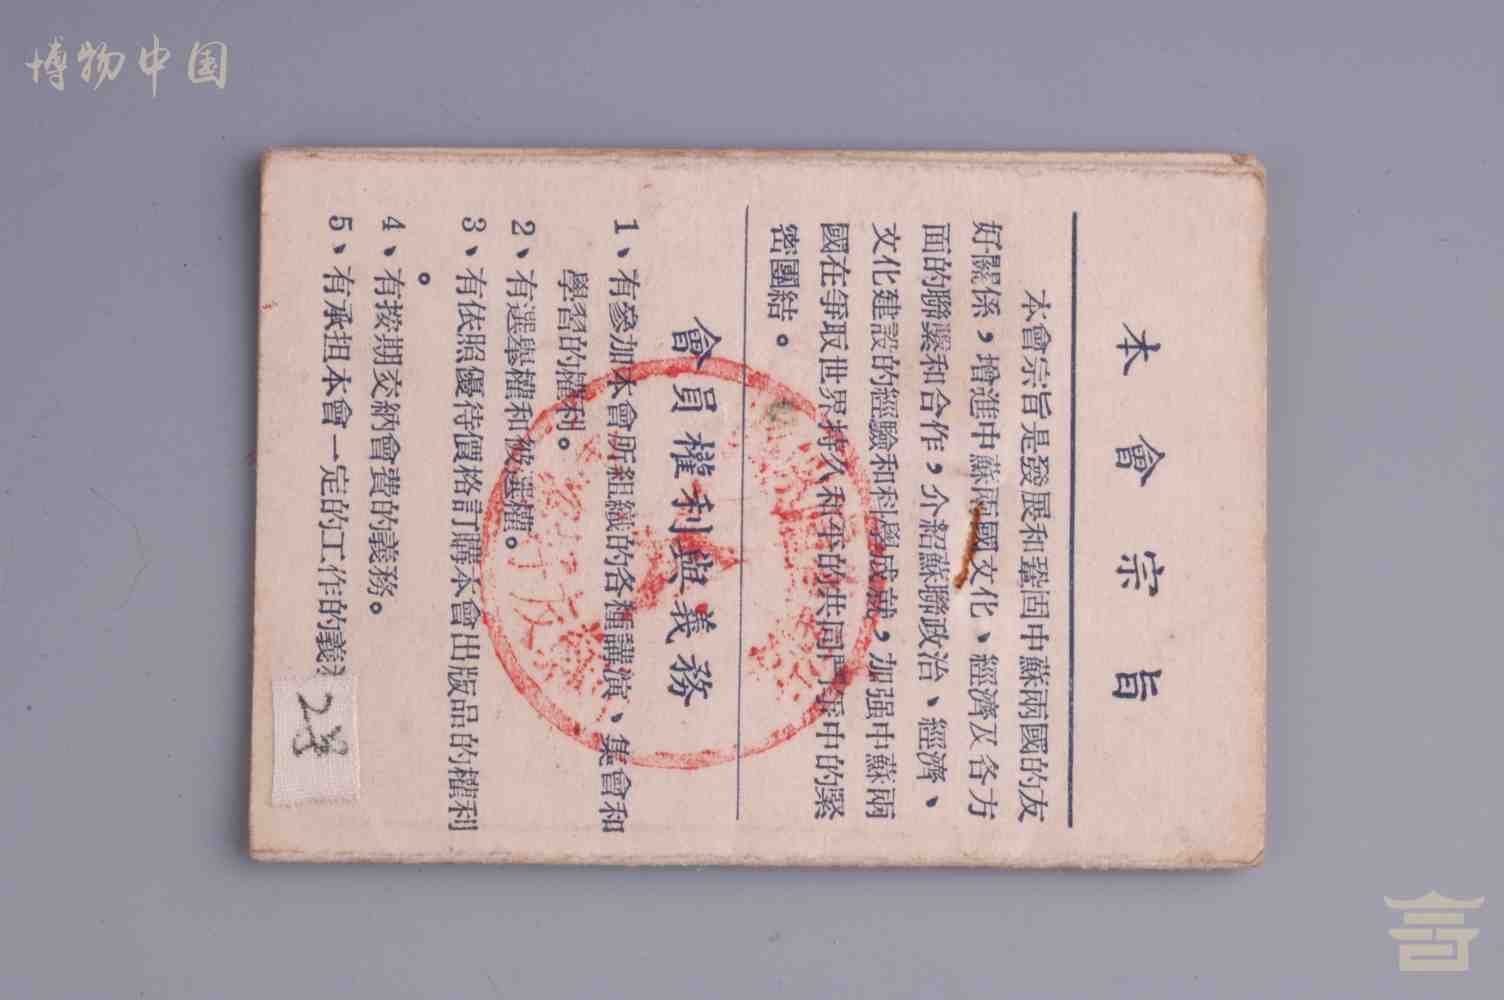 博物中国
本會宗旨
本會宗旨是發展和鞏固中蘇兩國的友
好關係，增進中蘇兩國文化、經濟及各方
面的聯繫和合作，介紹蘇聯政治、經濟、
文化建設的經驗和科學成就，加强中蘇兩
國在爭取世界持久和平的共同鬥爭中的緊
密團結。
會員權利與義務
1、有參加本會所組織的各種講演、集會和
學習的權利。
2、有選舉權和被選權。
3、有依照優待價格訂購本會出版品的權利
。
4、有按期交納會費的義務。
5、有承担本會一定的工作的義
28